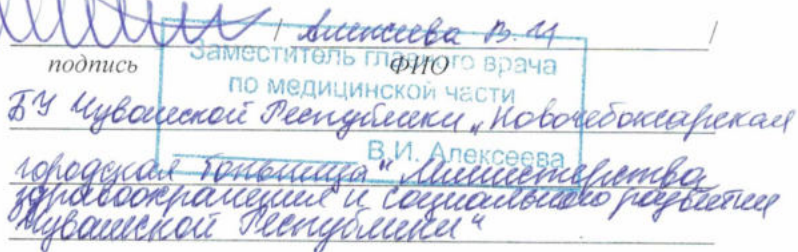 / Алексеева В.И /
подпись ФИО
Заместитель главного врача
по медицинской части
БУ Чувашской Республики „Новочебоксарская
В.И. Алексеева
городская больница" Министерства
здравоохранения и социального развития
Чувашской Республики"